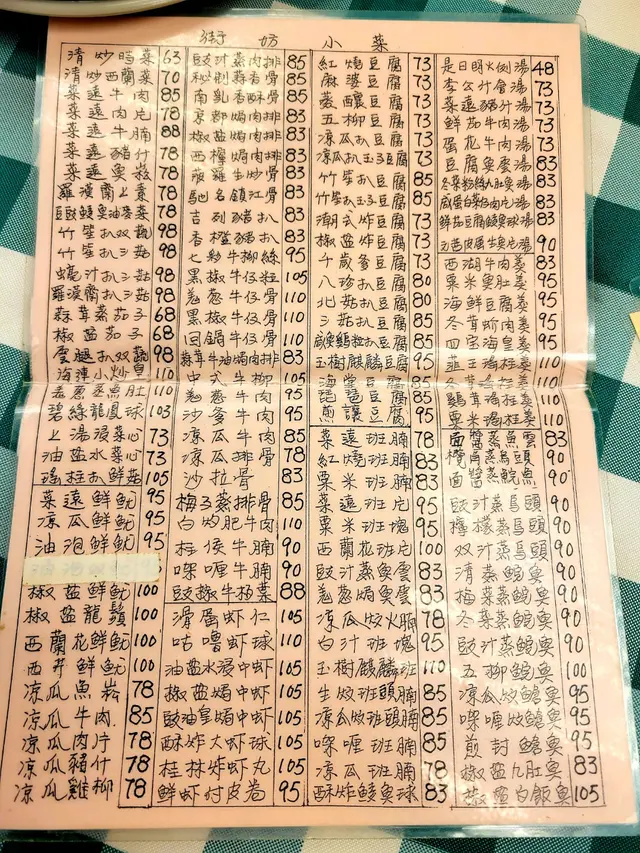 街坊小菜
清炒時菜 63
清炒西蘭菜 70
菜遠牛肉 85
菜遠肉片 78
菜遠牛腩 88
菜遠豬什 78
菜遠魚崧 78
羅漢齋上素 78
豆豉鯪魚油麥菜 78
竹笙扒双蔬 98
竹笙扒三菇 95
蠔汁扒三菇 98
羅漢齋扒三菇 98
蒜茸蒸茄子 68
椒盐茄子 68
雲腿扒双蔬 98
海連小炒皇 110
羌葱蒸魚肚 110
碧綠龍鳳球 103
上湯浸菜心 73
油盐水菜心 73
瑤柱扒鮮菇 105
菜遠鮮魷 95
凉瓜鮮魷 95
油泡鮮魷 95
椒盐鮮魷 100
椒盐龍鬚 100
西蘭花鮮魷 100
西芹鮮魷 100
凉瓜魚崧 78
凉瓜牛肉 85
凉瓜肉片 78
凉瓜豬什 78
凉瓜雞柳 78
豉汁蒸肉排 85
秘制蒜香骨 85
南乳香酥骨 85
京都焗肉排 83
椒盐焗肉排 83
西檸焗肉排 83
菠蘿生炒骨 83
馳名鎮江骨 83
吉列豬扒 83
香橙豬扒 83
七彩牛柳絲 95
黑椒牛仔粒 105
羌葱牛仔骨 110
黑椒牛仔骨 110
回鍋牛仔骨 110
蒜茸牛油焗肉排 83
中式牛柳 105
羌葱牛肉 95
沙爹牛肉 95
凉瓜牛肉 85
凉瓜肉排 78
沙拉骨 83
梅子蒸排骨 85
白灼肥牛肉 110
柱侯牛腩 90
咖喱牛腩 90
豉椒牛柏葉 88
滑蛋虾仁 105
咕嚕虾球 110
油盐水浸中虾 105
椒盐焗中虾 105
豉油皇焗中虾 105
酥炸大虾球 105
桂林炸虾丸 105
鮮虾付皮卷 95
紅燒豆腐 73
麻婆豆腐 73
蒸釀豆腐 73
五柳豆腐 73
凉瓜扒豆腐 73
凉瓜扒玉子豆腐 73
竹笙扒豆腐 85
竹笙扒玉子豆腐 85
潮式炸豆腐 73
椒盐炸豆腐 73
千歲爹豆腐 73
八珍扒豆腐 80
北菇扒豆腐 80
三菇扒豆腐 85
咸魚雞粒扒豆腐 85
玉樹麒麟豆腐 95
海棠豆腐 85
琵琶豆腐 85
煎讓豆腐 95
菜遠班腩 78
紅燒班腩 83
粟米班腩 83
菜遠班片 95
粟米班塊 95
西蘭花班片 100
豉汁蒸魚雲 83
羌葱焗魚雲 83
凉瓜炆火腩 78
白汁班塊 95
玉樹麒麟班 110
生炆班頭腩 85
凉瓜炆班頭腩 85
咖喱班腩 85
凉瓜班腩 78
酥炸鯪魚球 83
是日明火例湯 48
李公什會湯 73
菜遠豬什湯 73
鮮茄牛肉湯 73
蛋花牛肉湯 73
豆腐魚雲湯 83
冬菜粉絲九肚魚湯 83
咸蛋芥菜肉片湯 83
鮮茄豆腐鯪魚球湯 83
90
西湖牛肉羮 83
粟米魚肚羮 95
海鮮豆腐羮 95
冬茸蚧肉羮 95
四宝海皇羮 95
韮王瑤柱羮 110
冬茸瑤柱羮 110
雞茸瑤柱羮 110
粟米瑤柱羮 110
面醬蒸魚雲 83
欖角蒸烏頭 90
面醬蒸鯇魚 90
豉汁蒸烏頭 90
檸檬蒸烏頭 90
双汁蒸烏頭 90
清蒸鯇魚 90
梅菜蒸鯇魚 90
冬菜蒸鯇魚 90
豉汁蒸鯇魚 90
五柳鯇魚 100
凉瓜炆鱠魚 95
咖喱炆鱠魚 95
煎封鱠魚 95
椒盐九肚魚 83
椒盐白飯魚 105